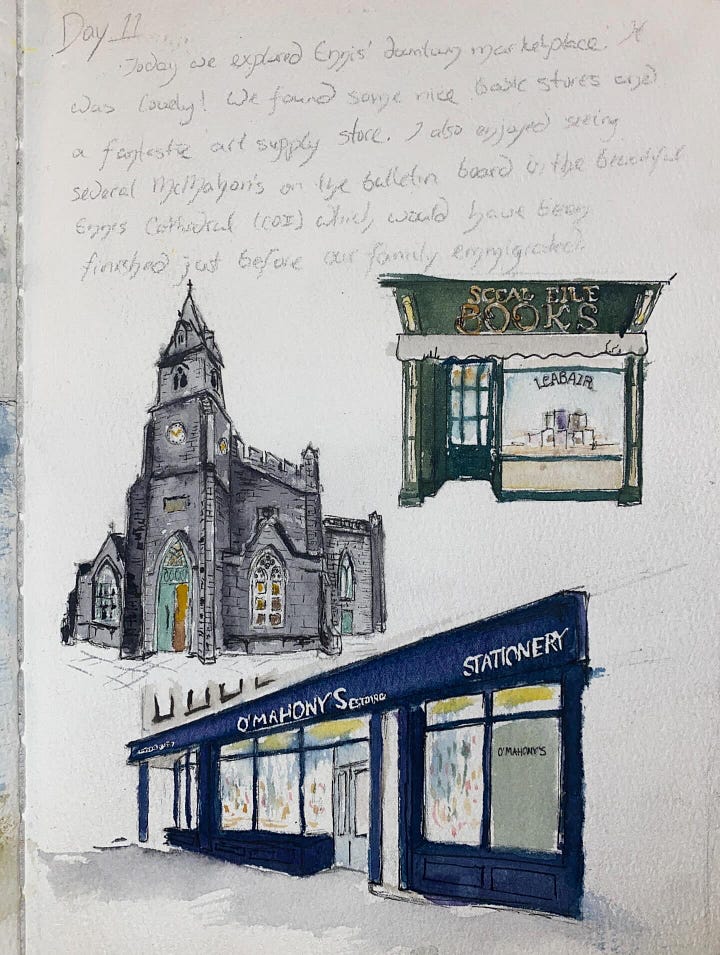 Day 11
Today we explored Ennis' downtown marketplace. It
was lovely! We found some nice book stores and
a fantastic art supply store. I also enjoyed seeing
several McMahon's on the bulletin board in the beautiful
Ennis Cathedral (COI) which would have been
finished just before our family emmigrated.
SCEAL EILE
BOOKS
LEABAIR
STATIONERY
O'MAHONY'S ESTD 1902
O'MAHONY'S